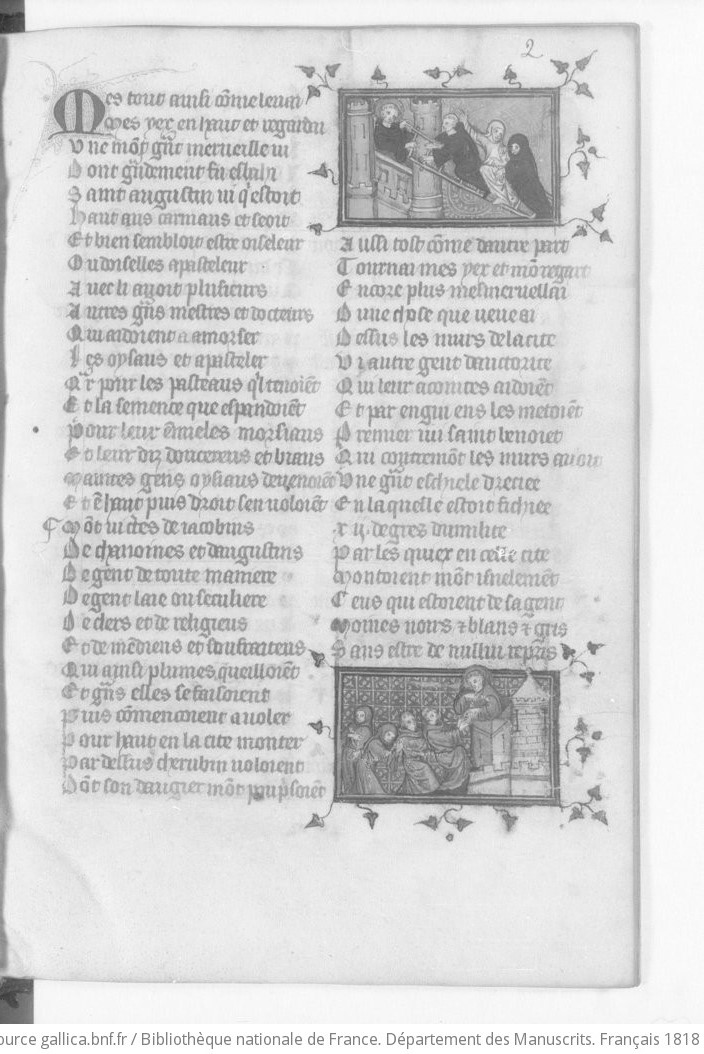 2
Mes tout ainsi cõme leuai
Mes yex en haut et regardai
Vne mõ̃t grãt merueille ui
Dont grãdement fu esbahi
Saint augustin ui q̃ estoit
Haut aus carniaus et seoit
Et bien sembloit estre oiseleur
Ou doiselles apasteleur
Auec li auoit plusieurs
Autres grãs mestres et docteurs
Qui aidoient a amorser
Les oysiaus et apasteler
Qar pour les pasteaus q̃l tenoiẽt
Et la semence que espandoiẽt
Pour leur ẽmieles morsiaus
Et leur diz doucereus et biaus
Maintes gens oysiaus deuenoiẽt
Et ẽ haut puis droit sen uoloiẽt
Mõt ui de iacobins
De chanoines et daugustins
De gent de toute maniere
De gent laie ou seculiere
De clers et de religieus
Et de mẽdiens et soufraiteus
Qui ainsi plumes queilloiẽt
Et grãs elles se faisoient
Puis cõmencoient a uoler
Pour haut en la cite monter
Par dessus cherubin uoloient
Dõt son daugier mõt pou p̃soiẽt
Aussi tost cõme dautre part
Tournai mes yex et mõ regart
Encore plus me merueillai
Dune chose que ueue ai
Dessus les murs de la cite
Vi autre gent dauctorite
Qui leur acointes aidoiẽt
Et par engin ens les metoiẽt
Premier ui saint benoiet
Qui contremõt les murs auoit
Vne grãt eschiele dreciee
En laquelle estoit fichiee
xii degres dumilite
Par les quiex en celle cite
Montoient mõt isnelemẽt
Ceus qui estoient de sa gent
Moines noirs ⁊ blans ⁊ gris
Sans estre de nullui repris
ource gallica.bnf.fr / Bibliothèque nationale de France. Département des Manuscrits. Français 1818